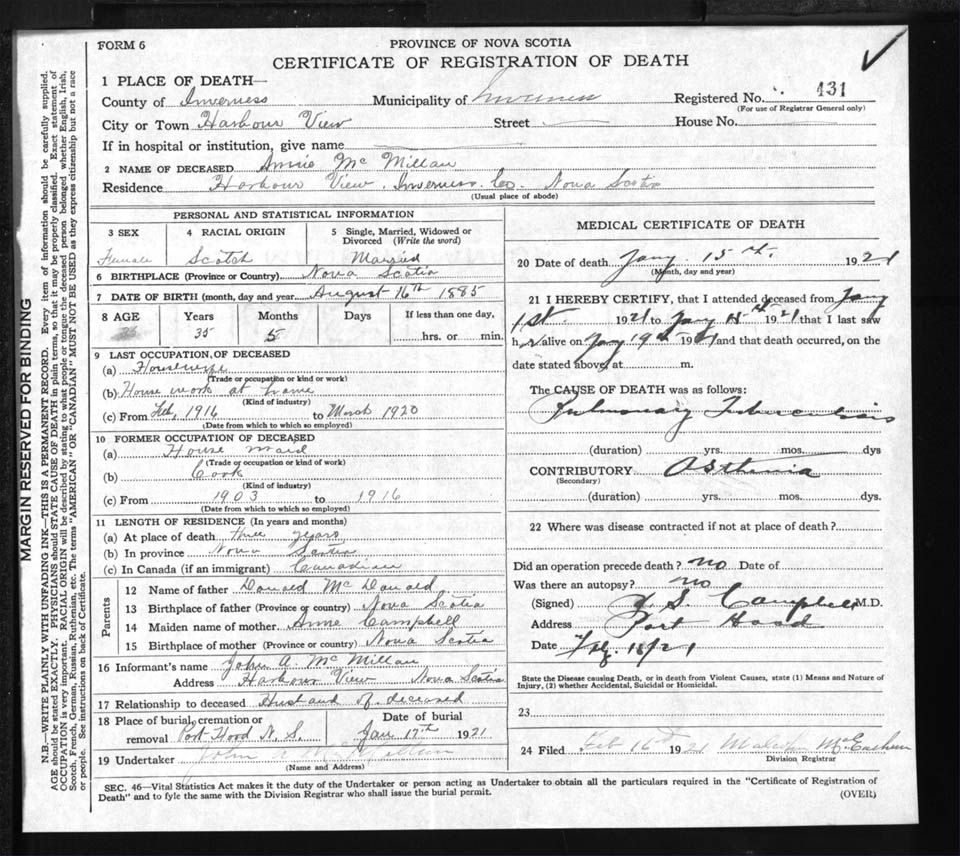 FORM 6
PROVINCE OF NOVA SCOTIA
CERTIFICATE OF REGISTRATION OF DEATH
1 PLACE OF DEATH—
County of Inverness Municipality of Inverness Registered No. 431
(For use of Registrar General only)
City or Town Harbour View Street House No.
If in hospital or institution, give name
2 NAME OF DECEASED Annie Mc Millan
Residence Harbour View. Inverness. Co. Nova Scotia
(Usual place of abode)
PERSONAL AND STATISTICAL INFORMATION
3 SEX 4 RACIAL ORIGIN 5 Single, Married, Widowed or Divorced (Write the word)
Female Scotch Married
6 BIRTHPLACE (Province or Country) Nova Scotia
7 DATE OF BIRTH (month, day and year) August 16th 1885
8 AGE Years Months Days If less than one day,
35 5 hrs. or min.
9 LAST OCCUPATION, OF DECEASED
(a) Housewife
(Trade or occupation or kind or work)
(b) House work at home
(Kind of industry)
(c) From Feb, 1916 to March 1920
(Date from which to which so employed)
10 FORMER OCCUPATION OF DECEASED
(a) House maid
(Trade or occupation or kind of work)
(b) Cook
(Kind of industry)
(c) From 1903 to 1916
(Date from which to which so employed)
11 LENGTH OF RESIDENCE (In years and months)
(a) At place of death three years
(b) In province Nova Scotia
(c) In Canada (if an immigrant) Canadian
Parents
12 Name of father Donald Mc Donald
13 Birthplace of father (Province or country) Nova Scotia
14 Maiden name of mother Anne Campbell
15 Birthplace of mother (Province or country) Nova Scotia
16 Informant's name John A. Mc Millan
Address Harbour View Nova Scotia
17 Relationship to deceased Husband of deceased
18 Place of burial, cremation or removal Port Hood N. S. Date of burial Jan. 17th 1921
19 Undertaker John Mc Millan
(Name and Address)
MEDICAL CERTIFICATE OF DEATH
20 Date of death Jany. 15th. 1921
(Month, day and year)
21 I HEREBY CERTIFY, that I attended deceased from Jany
1st. 1921 to Jany 1921 that I last saw
her alive on Jany 1921 and that death occurred, on the
date stated above, at m.
The CAUSE OF DEATH was as follows:
Pulmonary Tuberculosis
(duration) yrs. mos. dys
CONTRIBUTORY Asthenia
(Secondary)
(duration) yrs. mos. dys.
22 Where was disease contracted if not at place of death?
Did an operation precede death? no Date of
Was there an autopsy? no
(Signed) S. Campbell M.D.
Address Port Hood
Date
State the Disease causing Death, or in death from Violent Causes, state (1) Means and Nature of
Injury, (2) whether Accidental, Suicidal or Homicidal.
23
24 Filed Feb 16th 1921
Division Registrar
SEC. 46—Vital Statistics Act makes it the duty of the Undertaker or person acting as Undertaker to obtain all the particulars required in the "Certificate of Registration of
Death" and to fyle the same with the Division Registrar who shall issue the burial permit.
(OVER)
MARGIN RESERVED FOR BINDING
N.B.—WRITE PLAINLY WITH UNFADING INK—THIS IS A PERMANENT RECORD. Every item of information should be carefully supplied.
AGE should be stated EXACTLY. PHYSICIANS should STATE CAUSE OF DEATH in plain terms, so that it may be properly classified. Exact statement of
OCCUPATION is very important. RACIAL ORIGIN will be described by stating to what people or tongue the deceased person belonged, whether English, Irish,
Scotch, French, German, Russian, Ruthenian, etc. The terms "AMERICAN" or "CANADIAN" MUST NOT BE USED as they express citizenship but not a race
or people. See instructions on back of Certificate.